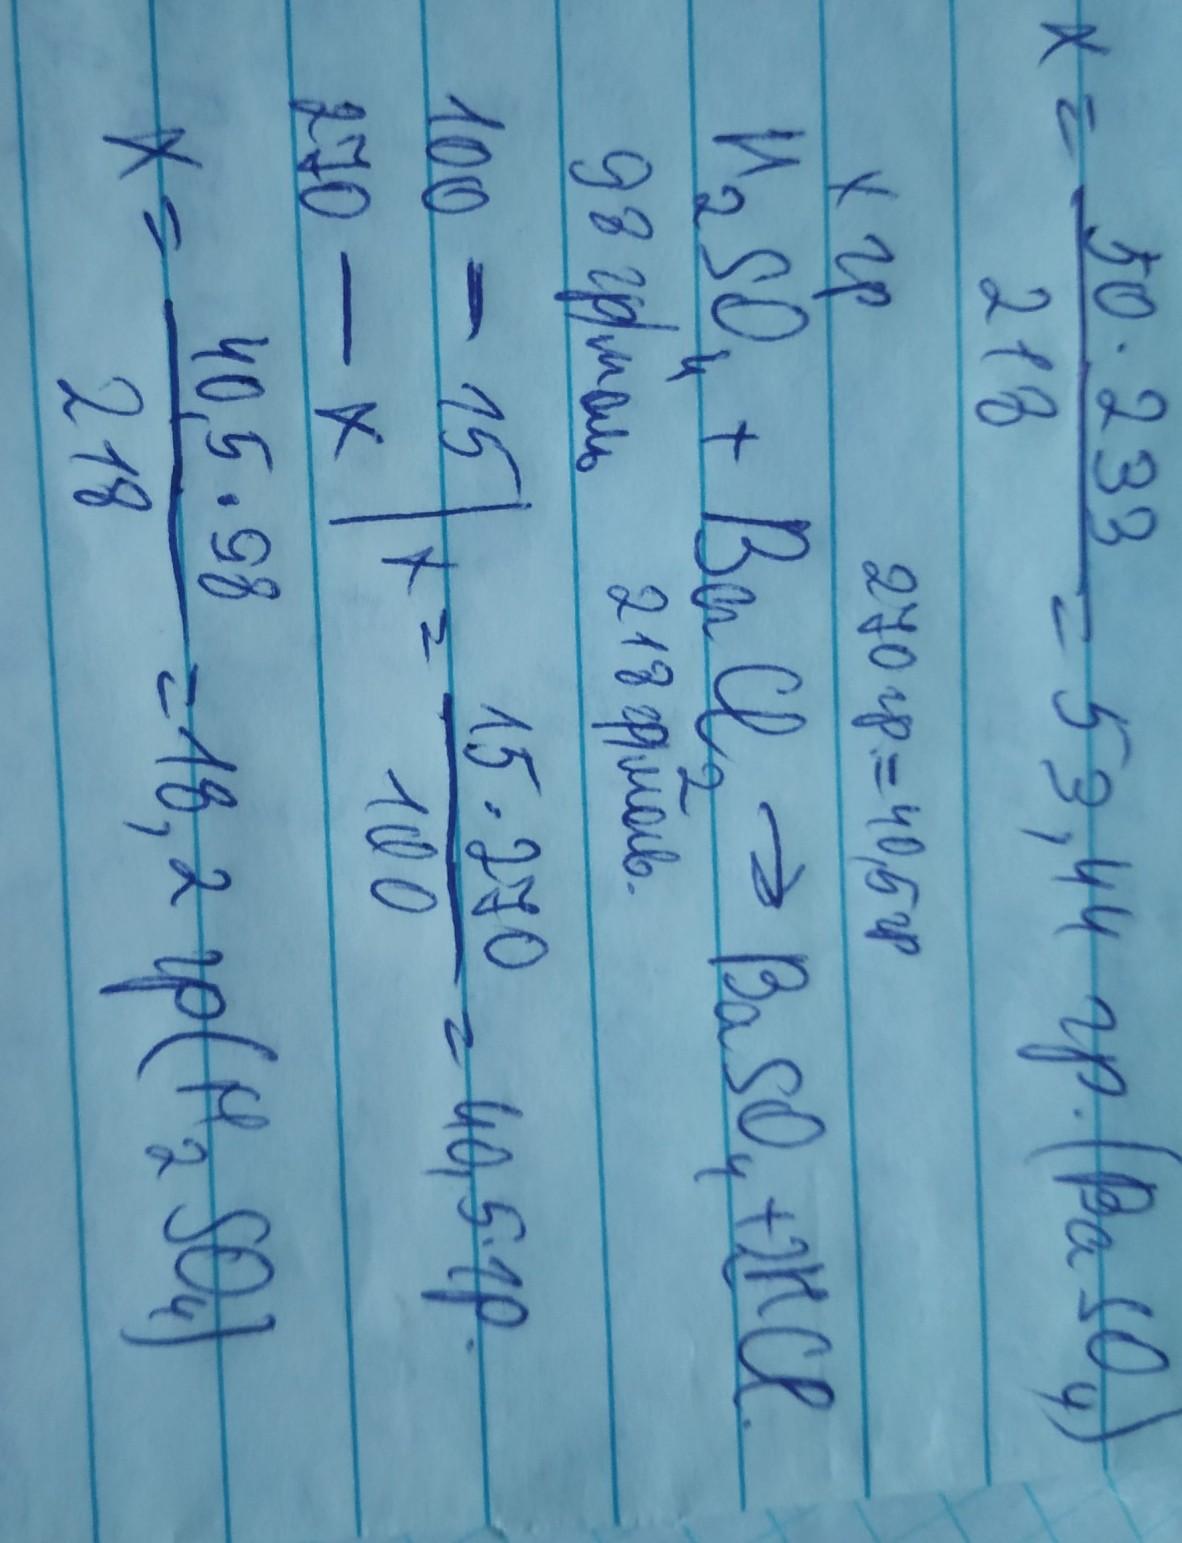 x = 50 · 233 / 218 = 53,44 гр. (BaSO₄)
x гр 270 гр. = 40,5 гр
H₂SO₄ + BaCl₂ → BaSO₄ + 2HCl.
98 гр/моль 218 гр/моль.
100 — 15 | x = 15 · 270 / 100 = 40,5 гр.
270 — x
x = 40,5 · 98 / 218 = 18,2 гр (H₂SO₄)